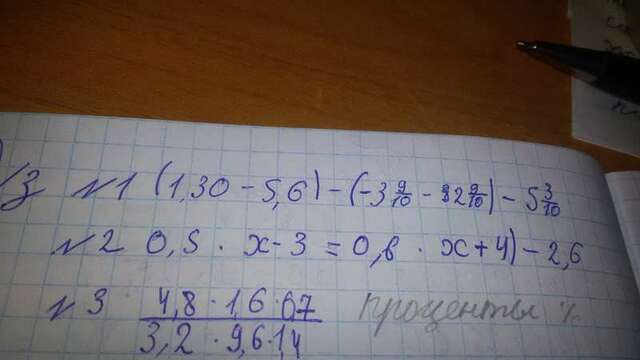 /з №1 (1,30 - 5,6) - (-3 9/10 - 32 9/10) - 5 3/10
№2 0,5 · x - 3 = 0,6 · x + 4) - 2,6
№3 4,8 · 1,6 · 0,7 / 3,2 · 9,6 · 1,4 проценты %